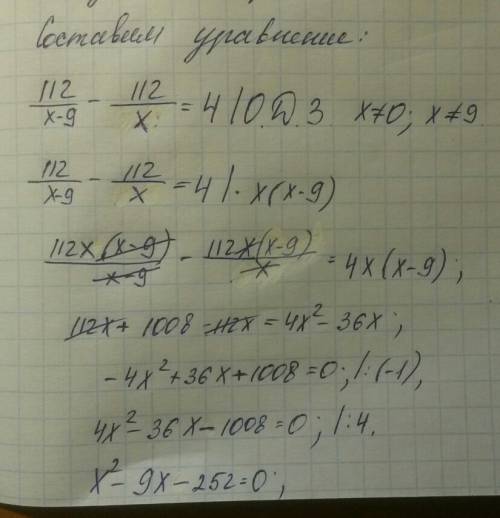 Составим уравнение:
112/(x-9) - 112/x = 4 | О.Д.З. x≠0; x≠9
112/(x-9) - 112/x = 4 | · x(x-9)
112x(x-9)/(x-9) - 112x(x-9)/x = 4x(x-9);
112x + 1008 - 112x = 4x² - 36x;
-4x² + 36x + 1008 = 0; |:(-1),
4x² - 36x - 1008 = 0; |:4.
x² - 9x - 252 = 0;